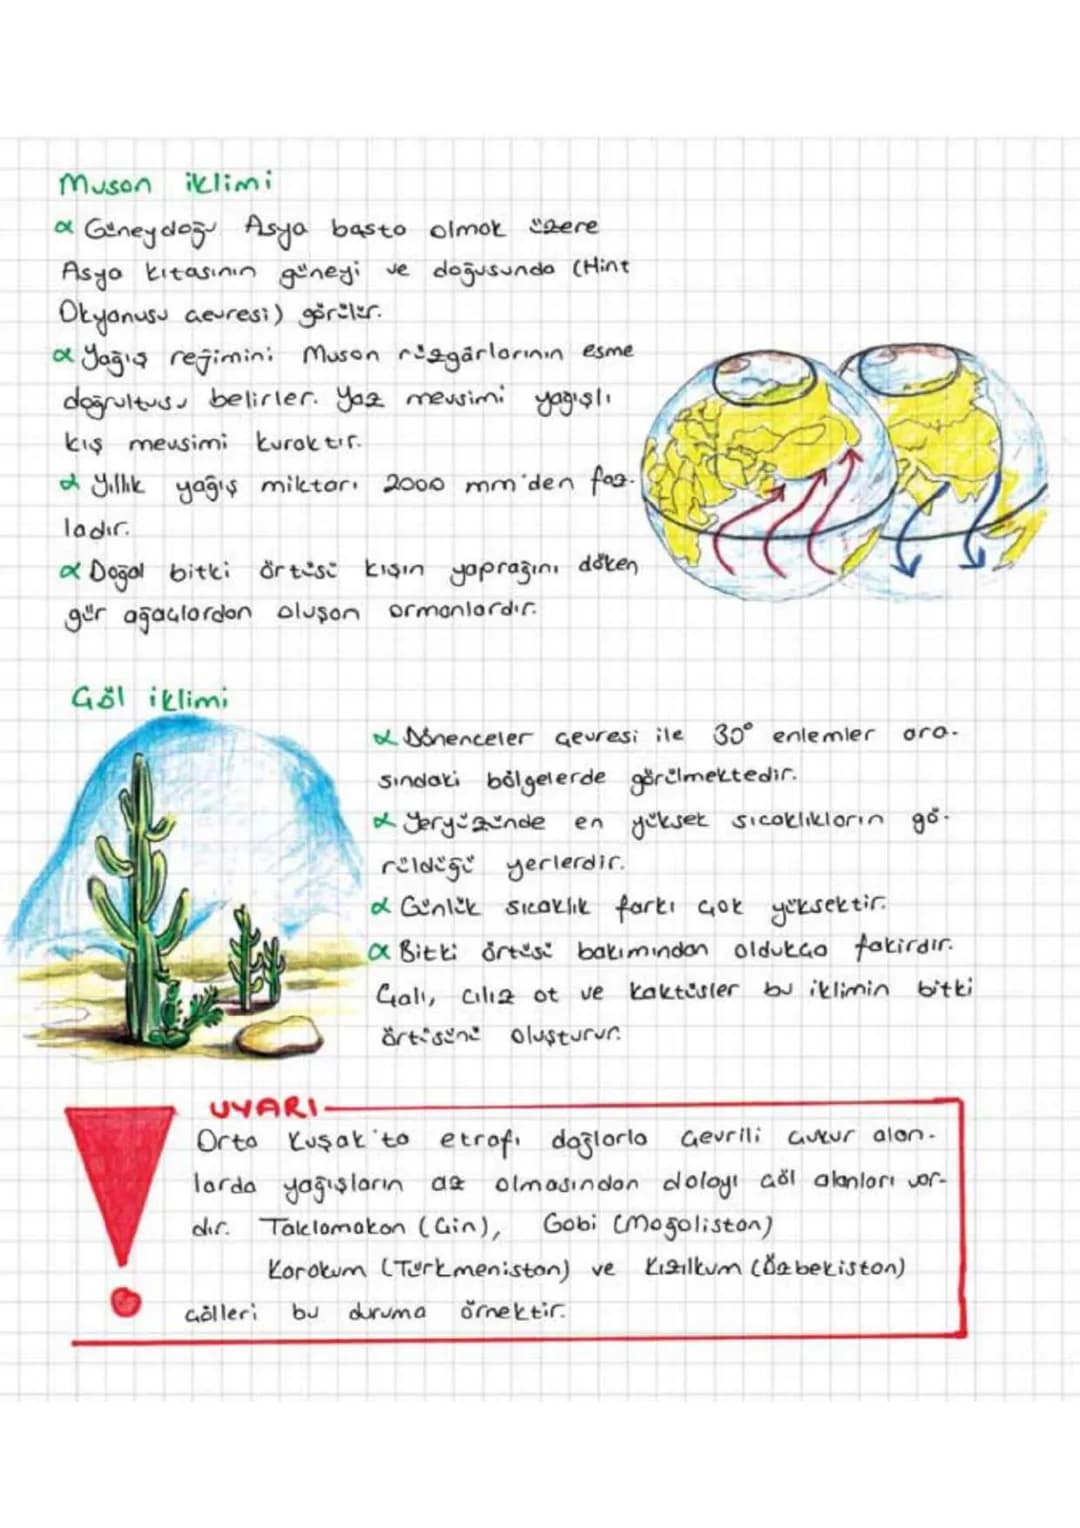 Muson iklimi
α Güneydoğu Asya başta olmak üzere
Asya kıtasının güneyi ve doğusunda (Hint
Okyanusu çevresi) görülür.
α Yağış rejimini Muson rüzgârlarının esme
doğrultusu belirler. Yaz mevsimi yağışlı
kış mevsimi kuraktır.
α Yıllık yağış miktarı 2000 mm'den faz-
ladır.
α Doğal bitki örtüsü kışın yaprağını döken
gür ağaçlardan oluşan ormanlardır.
Çöl iklimi
α Dönenceler çevresi ile 30° enlemler ara-
sındaki bölgelerde görülmektedir.
α Yeryüzünde en yüksek sıcaklıkların gö-
rüldüğü yerlerdir.
α Günlük sıcaklık farkı çok yüksektir.
α Bitki örtüsü bakımından oldukça fakirdir.
Çalı, cılız ot ve kaktüsler bu iklimin bitki
örtüsünü oluşturur.
UYARI
Orta Kuşak'ta etrafı dağlarla çevrili çukur alan-
larda yağışların az olmasından dolayı çöl alanları var-
dır. Taklamakan (Çin), Gobi (Moğolistan)
Karakum (Türkmenistan) ve Kızılkum (Özbekistan)
çölleri bu duruma örnektir.